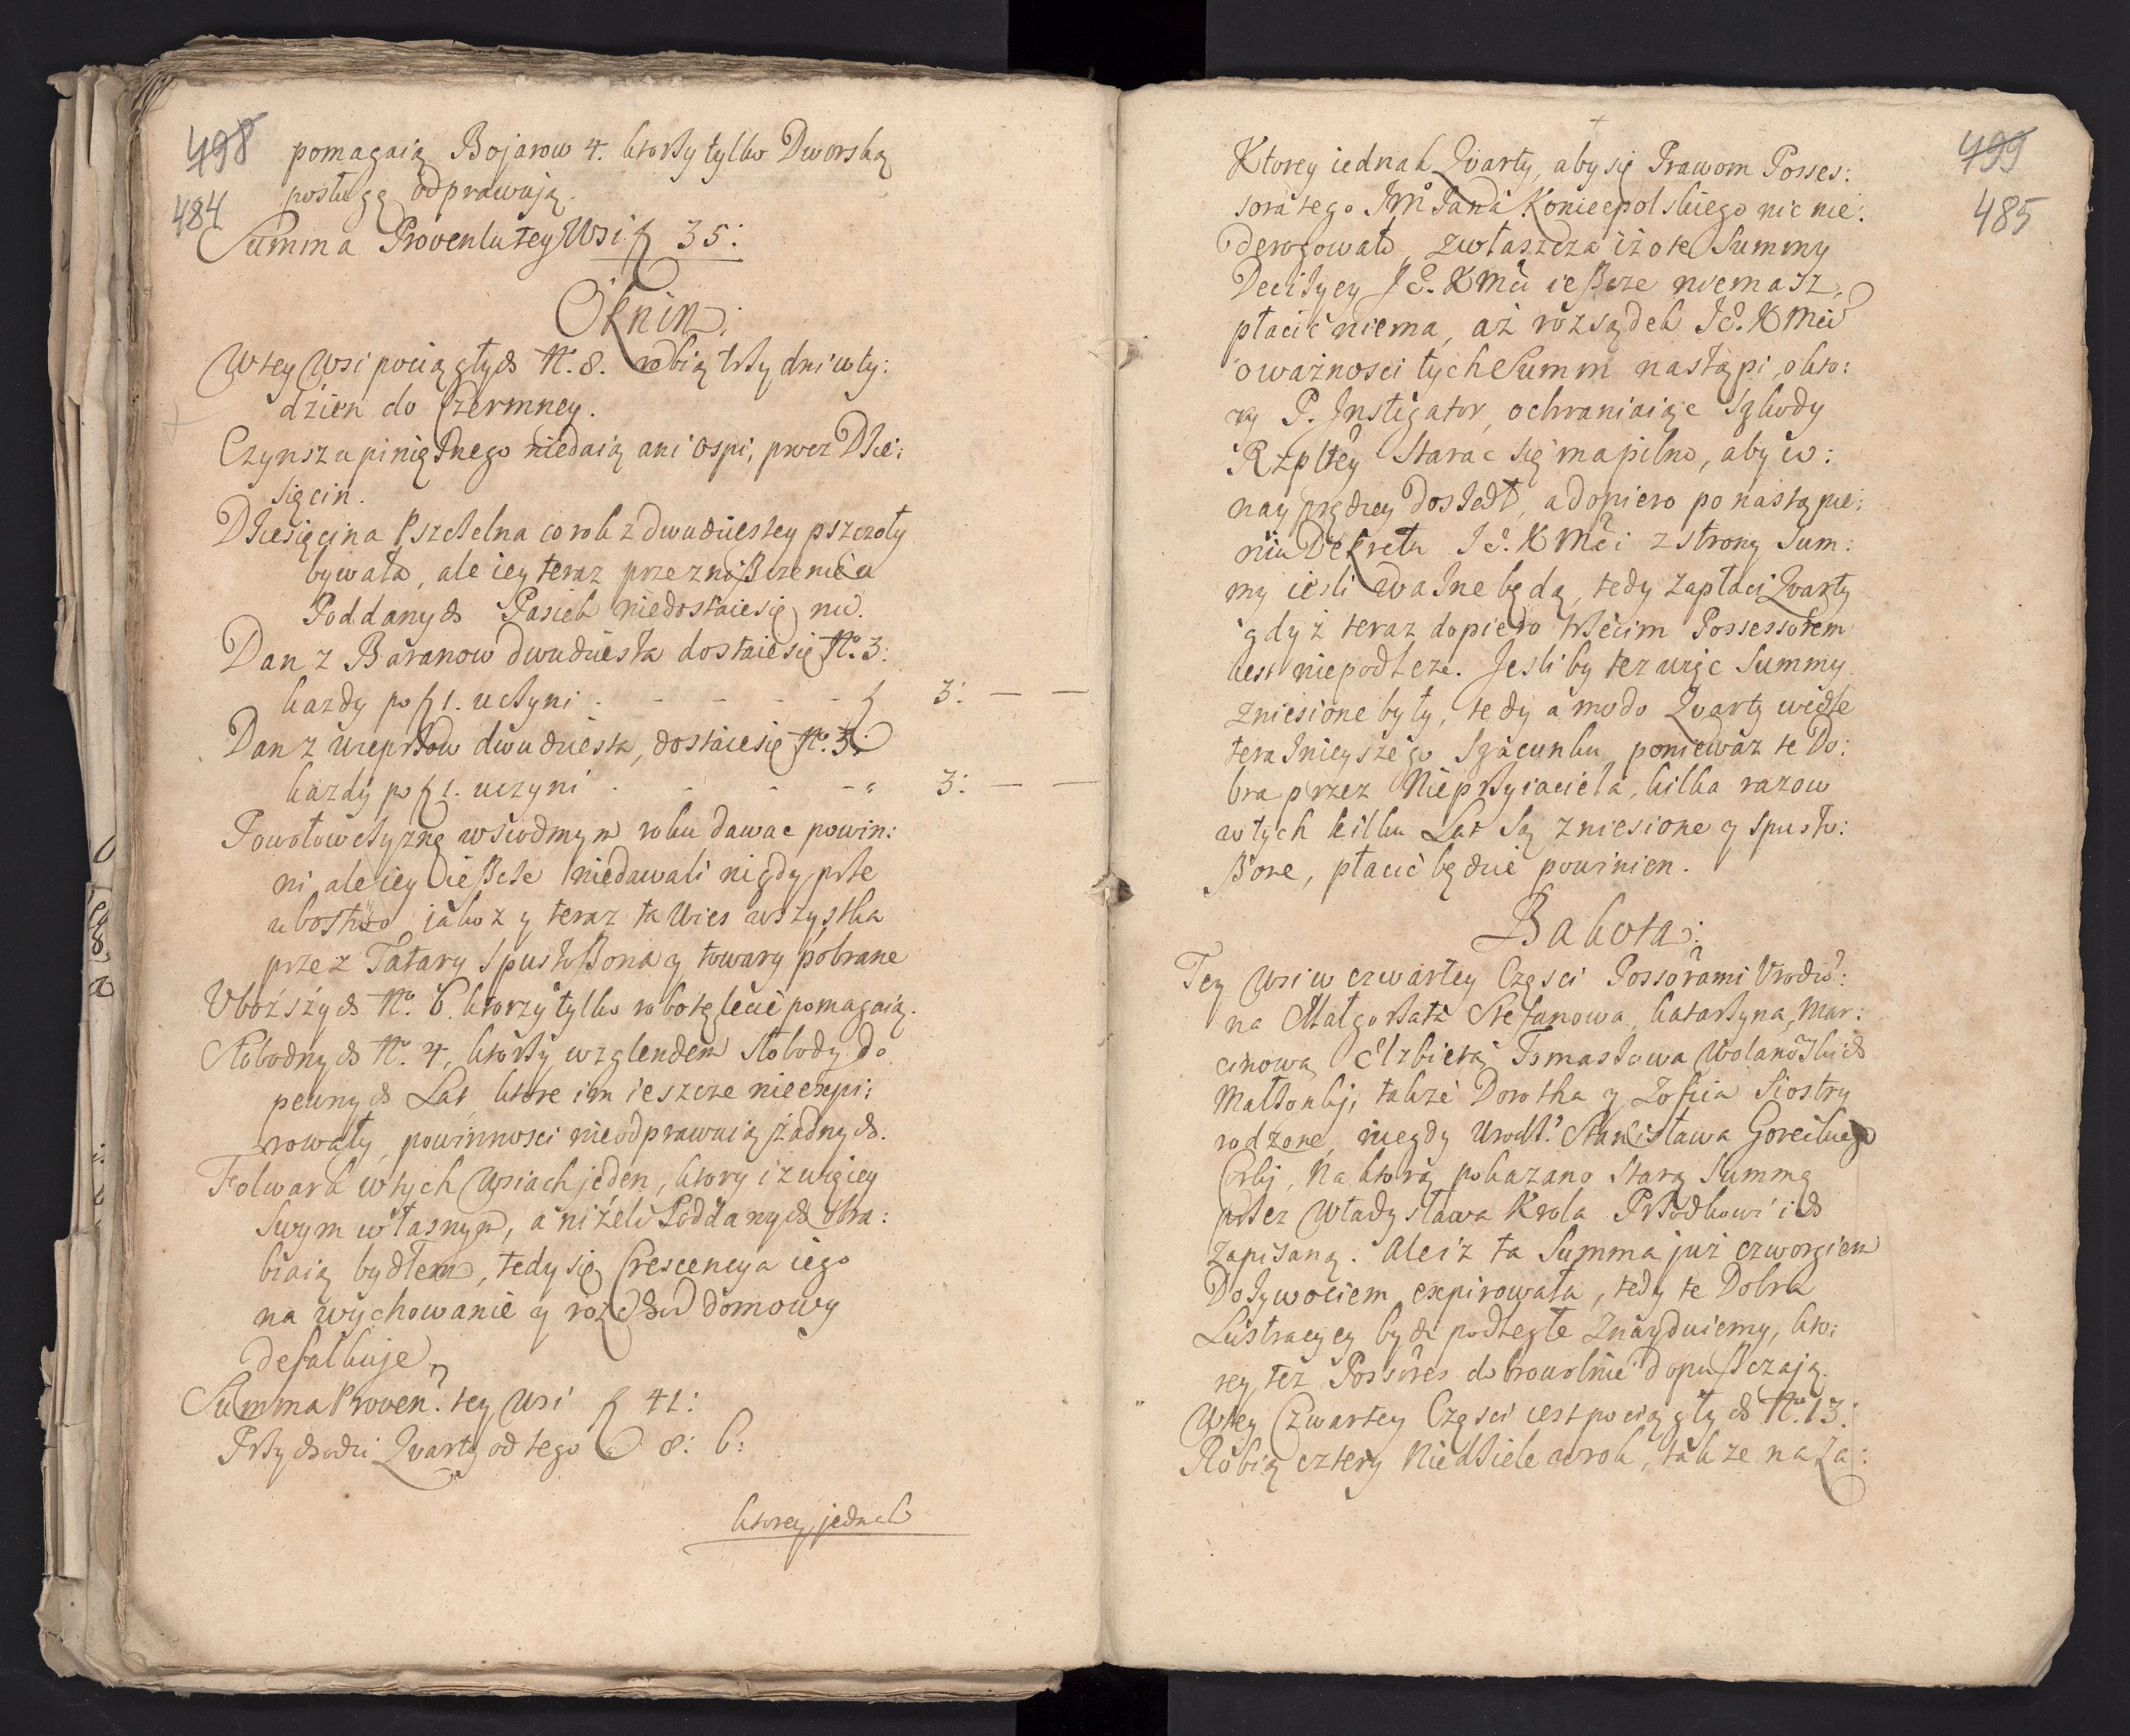 498
484
pomagaią Bojarow 4. ktorzy tylko Dworską
posługę odprawują.
Summa Proventu tey Wsi f 35:
Oknin:
Wtey Wsi pociągłych No. 8. robią trzy dni w ty:
dzień do Czermney.
Czynszu pinięznego niedaią ani ospi, procz Dzie:
sięcin.
Dziesięcina Pszczelna co rok z dwudziestey pszczoły
bywała, ale iey teraz prze zniszczenie u
Poddanych Pasiek niedostaie się nic.
Dan z Baranow dwudziesta dostaie się No. 3:
kazdy po f 1. uczyni . - - - - f 3: — —
Dan z wieprzow dwudziesta, dostaie się No. 3.
kazdy po f 1. uczyni . - - - - " 3: — —
Powołowczyznę w siodmym roku dawac powin:
ni, ale iey ieszcze niedawali nigdy prze
ubostwo, jakoz y teraz ta Wies wszystka
przez Tatary spustoszona y towary pobrane
Uboższych No. 6. ktorzy tylko robotę lecie pomagaią.
Słobodnych No. 4, ktorzy wzglendem słobody do
pewnych Lat ktore im ieszcze nie expi:
rowały, powinnosci nieodprawuią żadnych.
Folwark w tych Wsiach jeden, ktory iz więcey
swym własnym, a niżeli Poddanych obra:
biaią bydłem, tedy się Crescencya iego
na wychowanie y rozchod domowy
defalkuje.
Summa Proven: tey Wsi f 41:
Przychodzi Qvarty od tego " 8: 6:
ktorey jednak
499
485
Ktorey iednak Qvarty, aby się Prawom Posses:
sora tego JMo Pana Koniecpolskiego nic nie:
derogowało, zwłaszcza iż o te Summy
Decizyey Jo. K Mci ieszcze niemasz,
płacić niema, aż rozsądek Jo. K Mci
o ważnosci tych Summ nastąpi, o kto:
ry P. Instigator, ochraniaiąc szkody
Rzpltey starac się ma pilno, aby w:
nayprędzey doszedł, a dopiero po nastąpie:
niu Dekretu Jo. K Mci z strony Sum:
my iesli ważne będą, tedy zapłaci Qvartę
gdyż teraz dopiero trzecim Possessorem
iest niepodleze. Jesliby tez więc Summy
zniesione były, tedy a modo Qvartę wedle
terażnieyszego szacunku, poniewaz te Do:
bra przez Nieprzyiaciela, kilka razow
w tych kilku Lat są zniesione y spusto:
szone, płacić będzie powinien.
Bakota:
Tey Wsi w czwartey Częsci Possorami Vrodzo:
na Małgorzata Stefanowa, Katarzyna, Mar:
cinowa, Elzbieta, Tomaszowa Wolanowskich
Małżonki, takze Dorothea y Zofiia Siostry
rodzone, niegdy Urodz: Stanisława Goreckiego
Corki, Na ktorą pokazano starą Summę
przez Władysława Krola Przodkowi ich
zapisaną. Ale iz ta Summa już czworgiem
Dożywociem expirowała, tedy te Dobra
Lustracyey bydz podległe znayduiemy, kto:
rey tez Possores dobrowolnie dopuszczają.
Wtey Czwartey Częsci iest pociągłych No. 13:
Robią cztery Niedziele w rok, takze na Za: